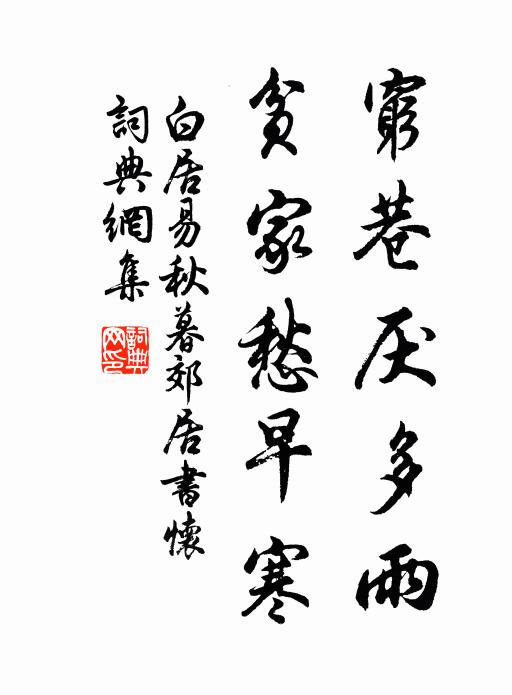 窮巷厌多雨
貧家愁早寒
白居易秋暮郊居書懷
詞典網集
詞典网印